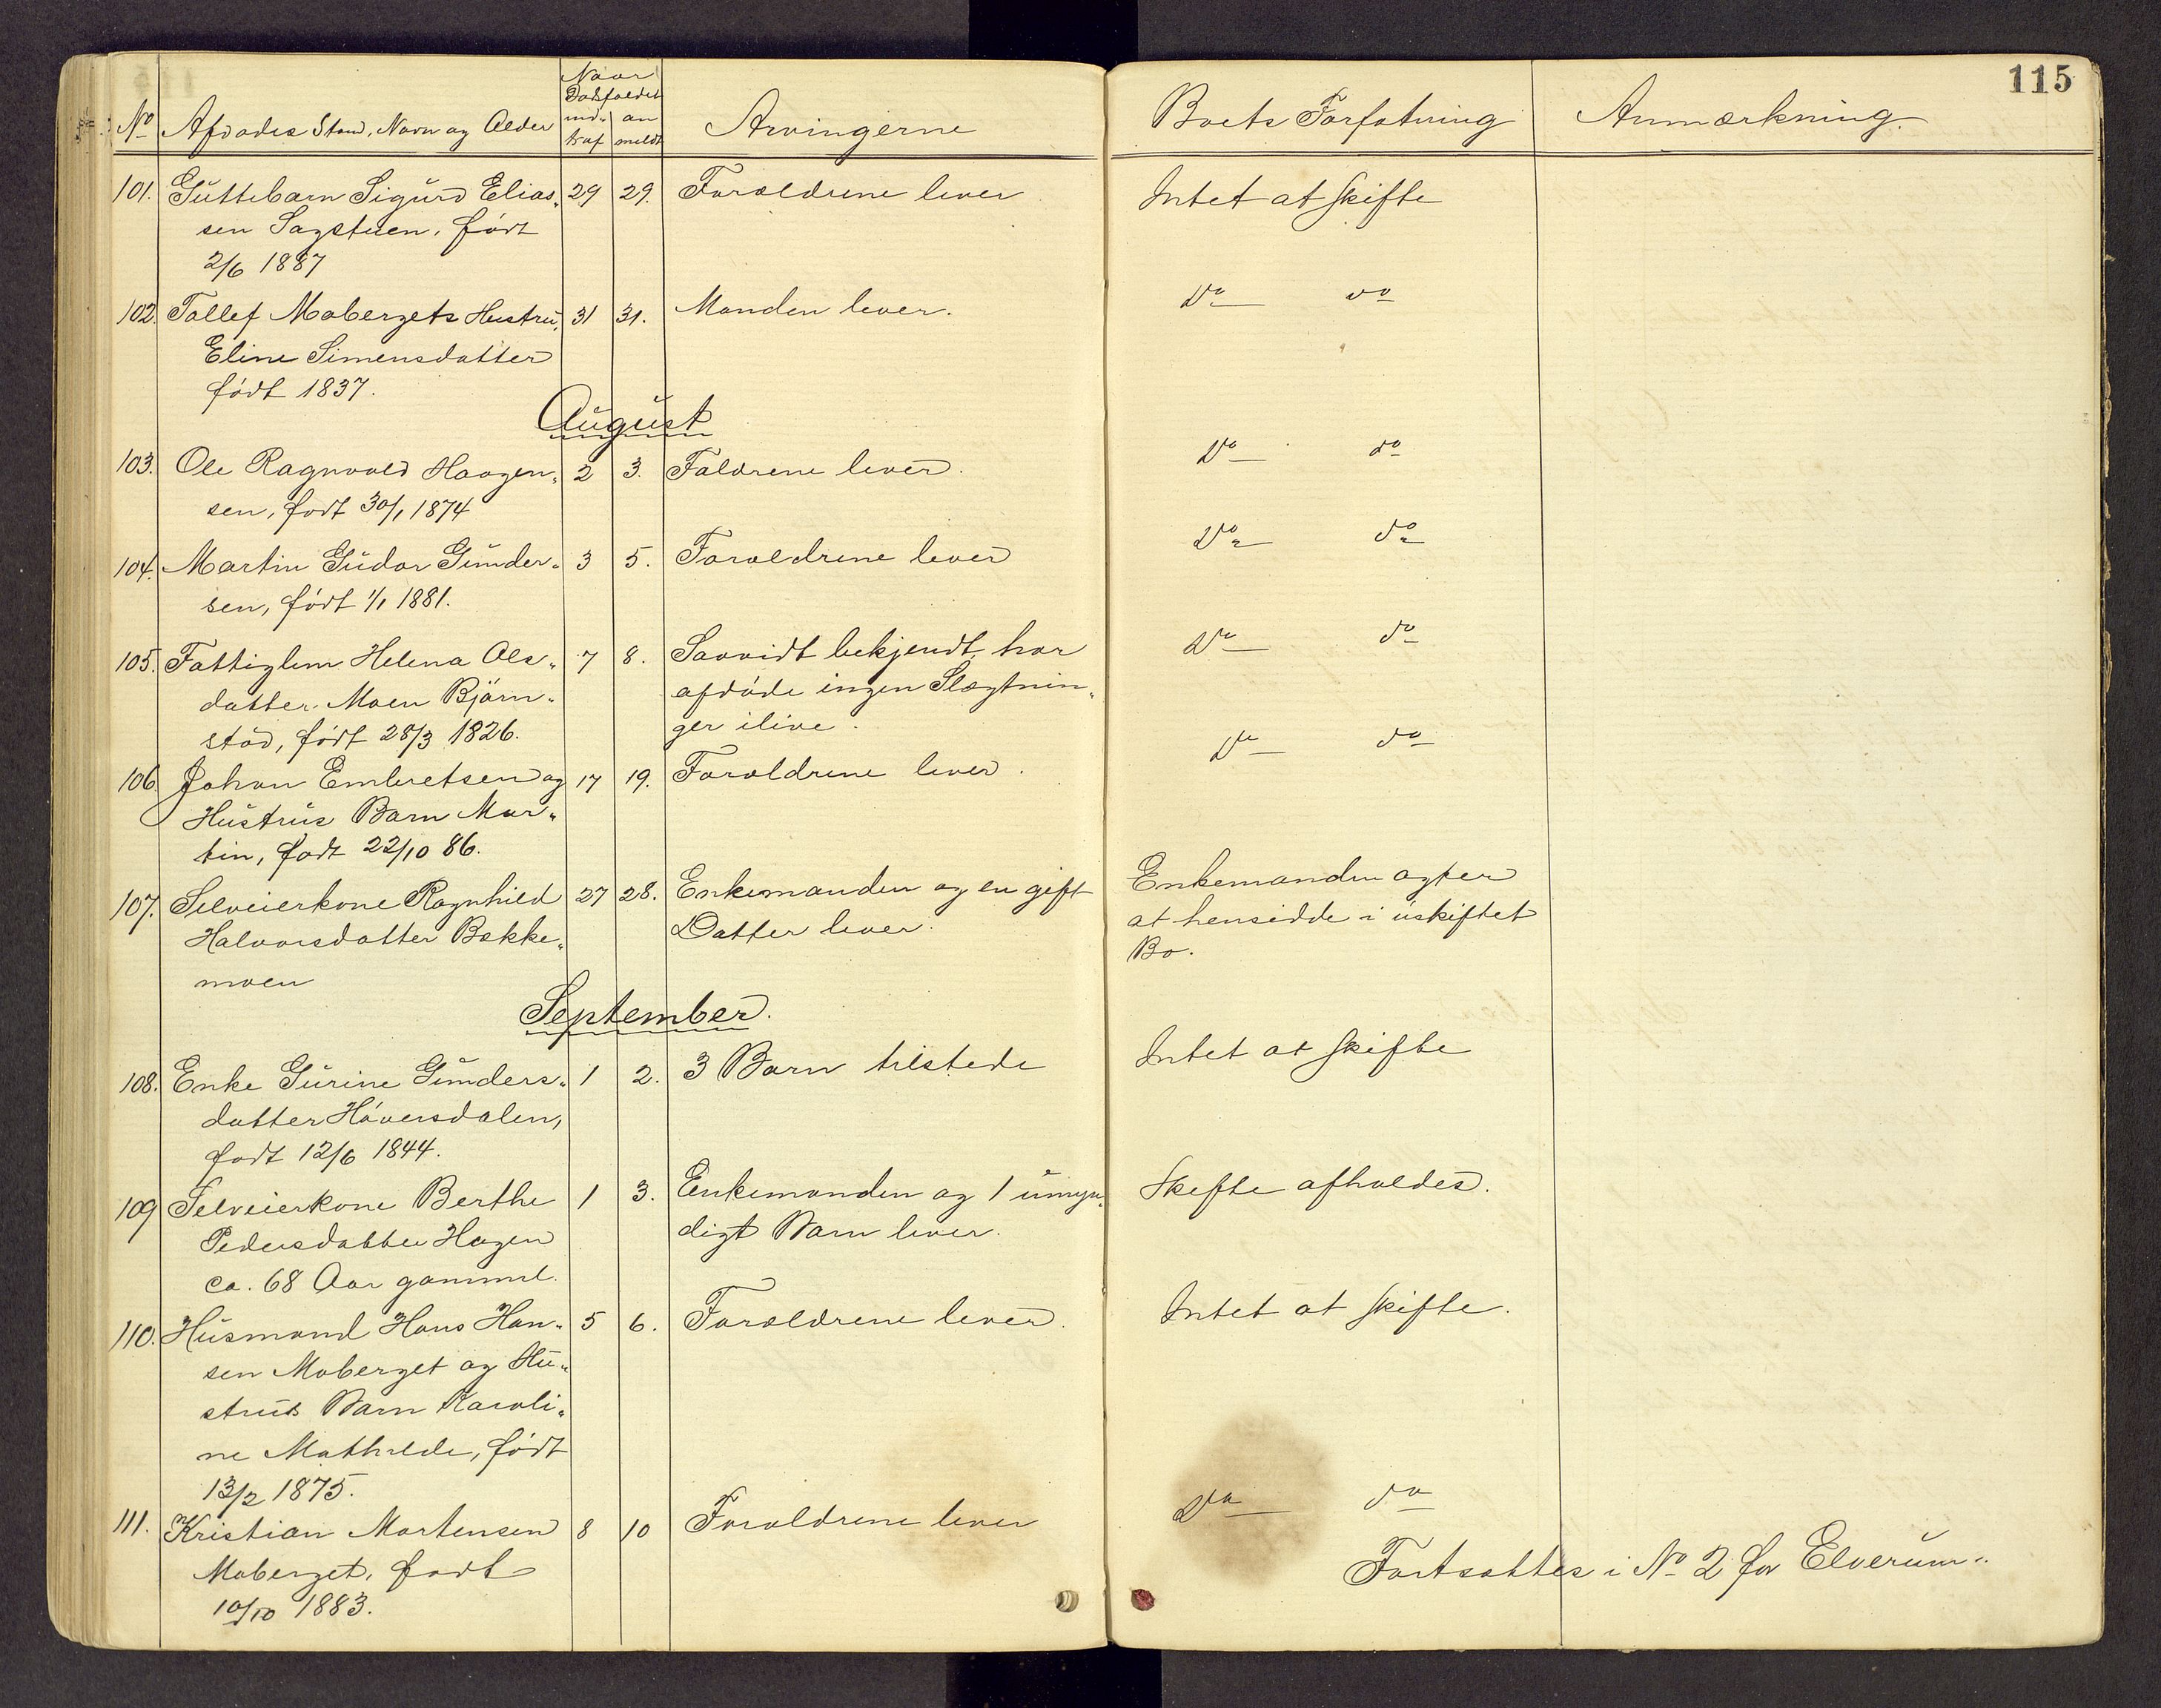 115
No Afdødes Stand, Navn og Alder
Naar
Dødsfaldet
ind- an
traf meldt
Arvingerne
Boets Forfatning
Anmærkning.
101. Guttebarn Sigurd Elias- 29 29. Forældrene lever Intet at skifte
sen Sagstuen, født
2/6 1887
102. Tollef Mobergets Hustru, 31 31. Manden lever. Do do
Eline Simensdatter
født 1837.
August
103. Ole Ragnvald Haagen- 2 3. Faldrene lever. Do do
sen, født 30/1 1874
104. Martin Gudor Gunder- 3 5. Forældrene lever Do do
sen, født 1/1 1881.
105. Fattiglem Helena Ols- 7 8. Saavidt bekjendt har Do do
datter Moen Björn- afdøde ingen Slægtnin-
stad, født 28/3 1826. ger ilive.
106. Johan Embretsen og 17 19. Forældrene lever. Do do
Hustrus Barn Mar-
tin, født 22/10 86.
107. Selveierkone Ragnhild 27 28. Enkemanden og en gift Enkemanden agter
Halvorsdatter Bække- Datter lever. at hensidde i uskiftet
moen Bo.
September.
108. Enke Gurine Gunders- 1 2. 3 Barn tilstede Intet at skifte
datter Høversdalen,
født 12/6 1844.
109 Selveierkone Berthe 1 3. Enkemanden og 1 umyn- Skifte afholdes.
Pedersdatter Hagen digt Barn lever.
ca. 68 Aar gammel.
110. Husmand Hans Han- 5 6. Forældrene lever. Intet at skifte.
sen Moberget og Hu-
strus Barn Karoli-
ne Mathilde, født
13/2 1875.
111. Kristian Mortensen 8 10 Forældrene lever Do do
Moberget, født
10/10 1883.
Fortsættes i No 2 for Elverum.